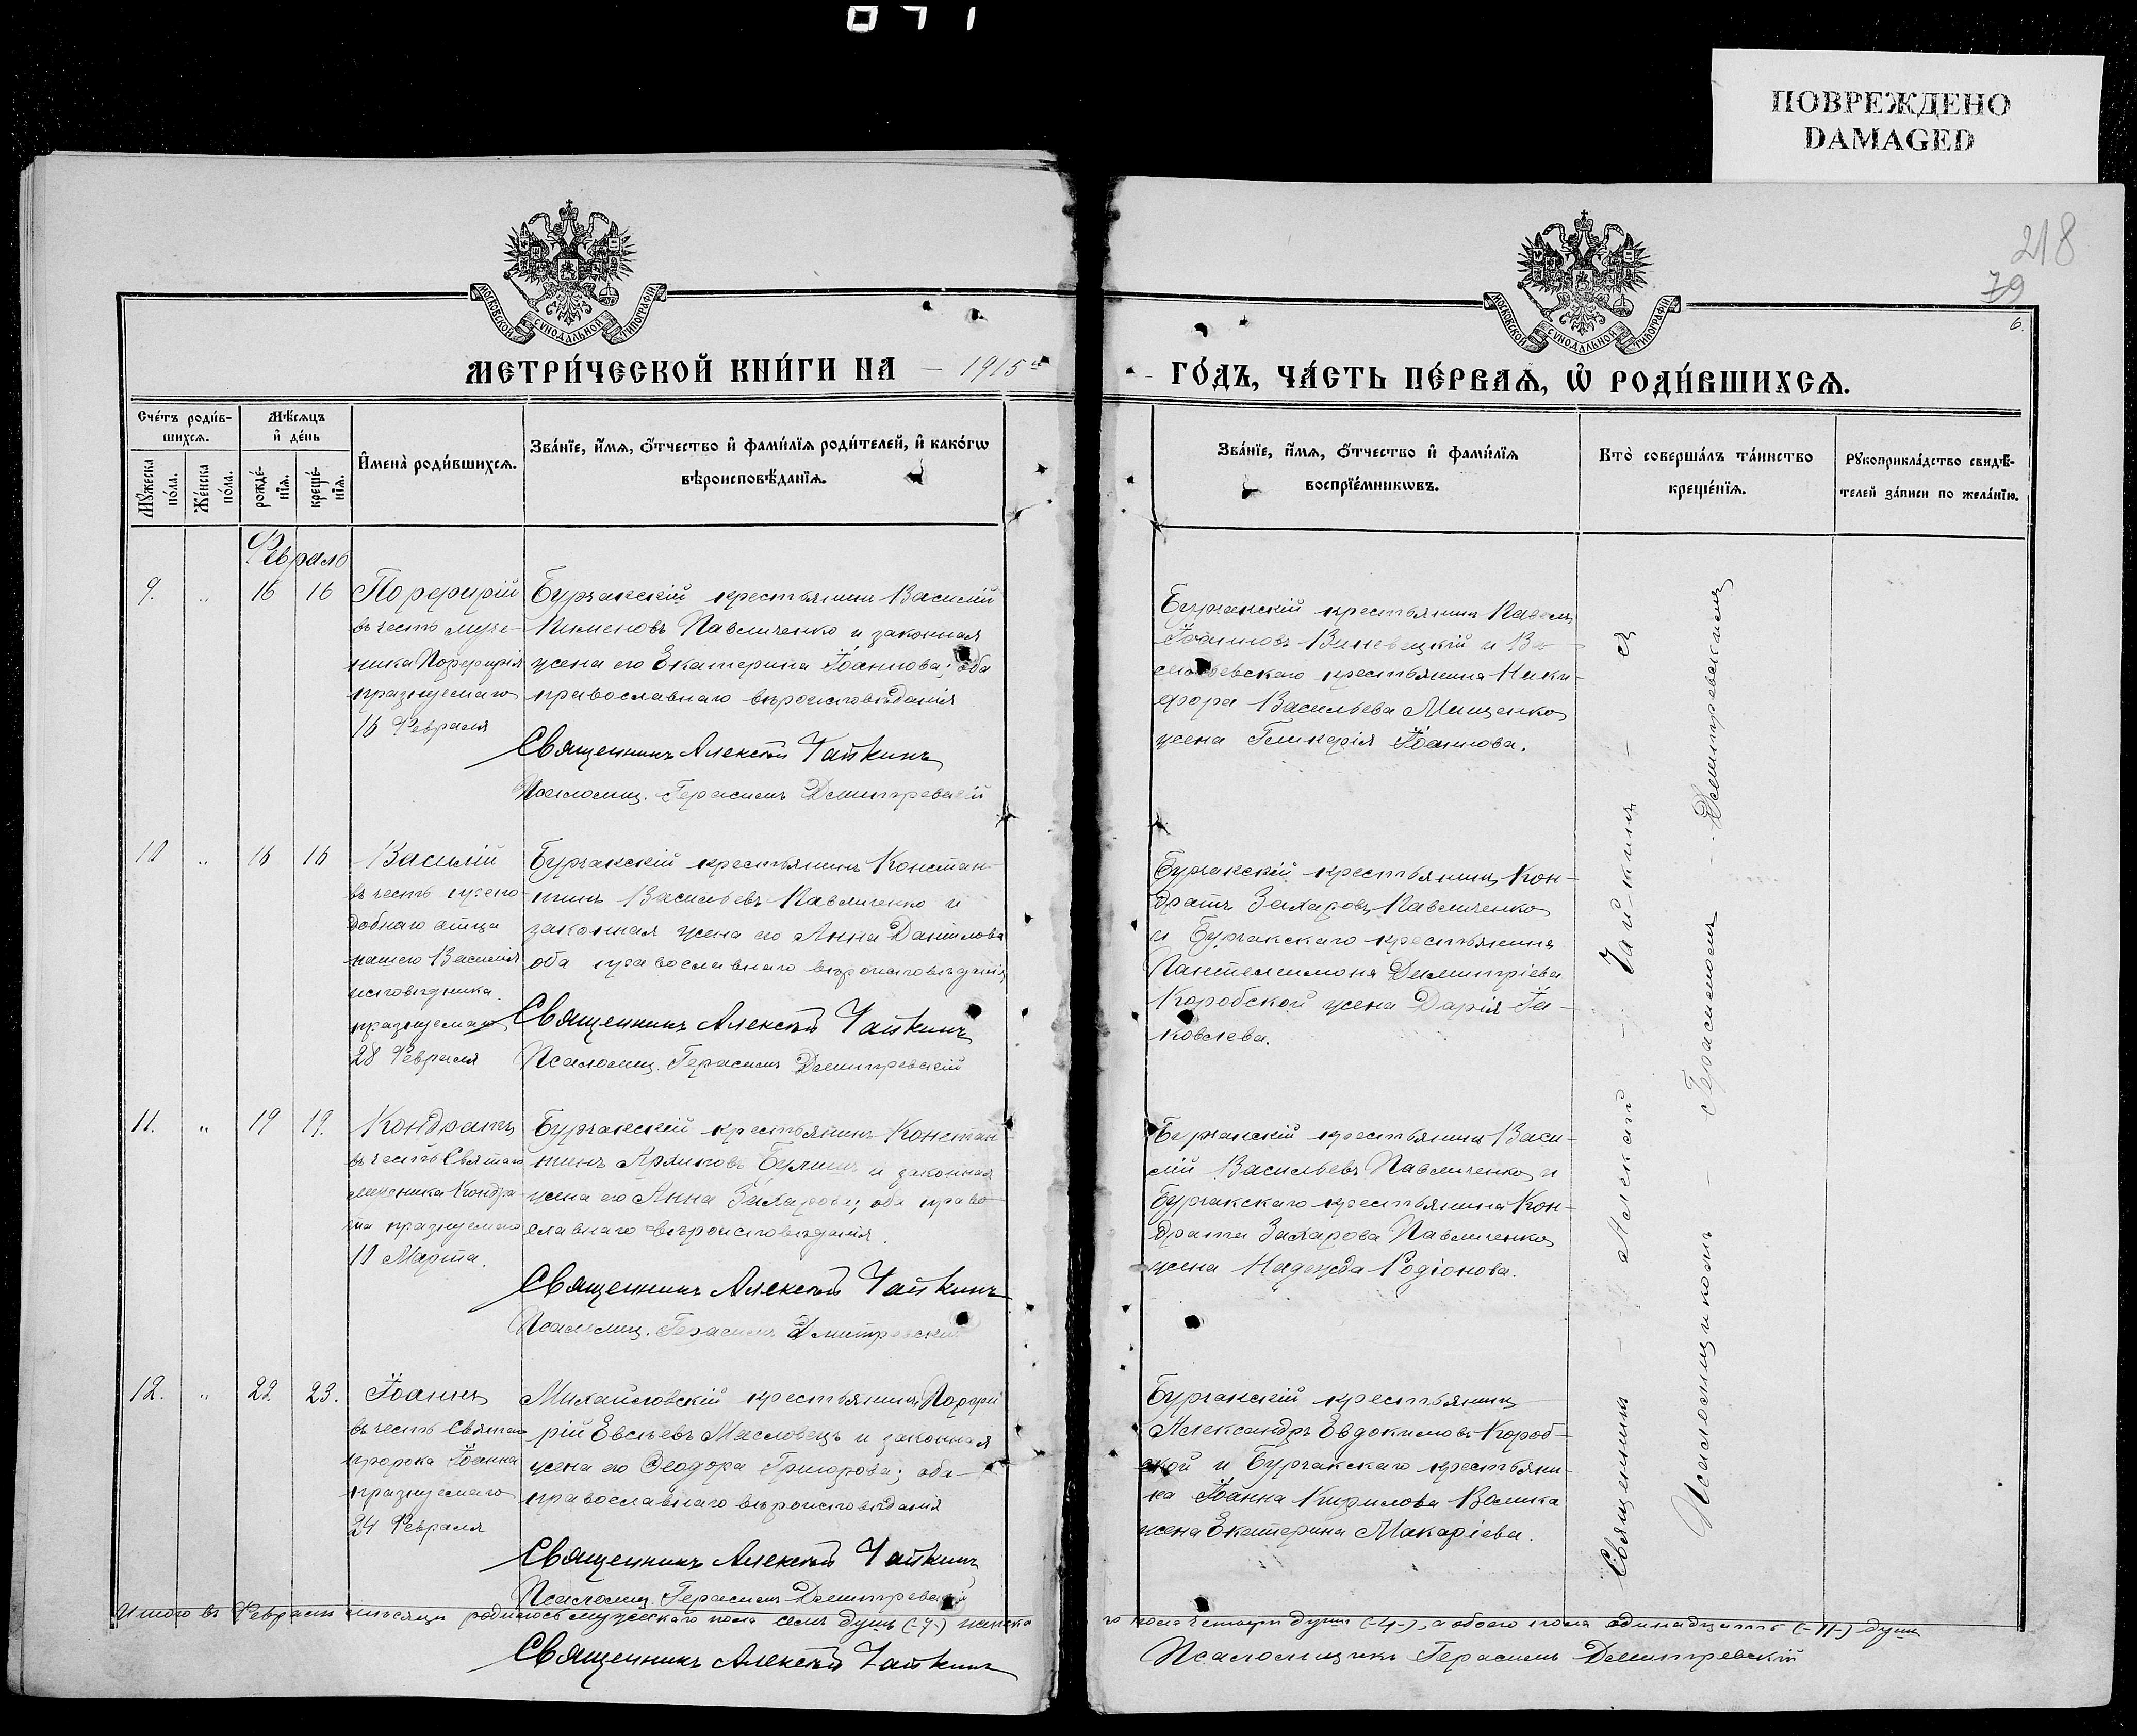 871
ПОВРЕЖДЕНО
DAMAGED
218
79
6.
МОСКОВСКОЙ СѴНОДАЛЬНОЙ ТИПОГРАФІИ
МОСКОВСКОЙ СѴНОДАЛЬНОЙ ТИПОГРАФІИ
МЕТРИ́ЧЕСКОЙ КНИ́ГИ НА — 1915й
ГО́ДЪ, ЧА́СТЬ ПЕ́РВАѦ, Ѡ҆ РОДИ́ВШИХСѦ.
Сче́тъ роди́в-
шихсѧ.
Мꙋ́жеска по́ла.
Же́нска по́ла.
Мѣ́сѧцъ
и҆ де́нь
рожде́-
нїѧ.
креще́-
нїѧ.
И҆мена̀ роди́вшихсѧ.
Зва́нїе, и҆́мѧ, ѻ҆́тчество и҆ фами́лїѧ роди́телей, и҆ како́гѡ
вѣроисповѣ́данїѧ.
Зва́нїе, и҆́мѧ, ѻ҆́тчество и҆ фами́лїѧ
воспрїе́мникѡвъ.
Кто̀ соверша́лъ та́инство
креще́нїѧ.
Рꙋкоприкла́дство свидѣ́-
телей за́писи по жела́нїю.
Февраль
9. „ 16 16 Порфирій
въ честь муче-
ника Порфирія
празнуемаго
16 Февраля
Бурчакскій крестьянинъ Василій
Пименовъ Павличенко и законная
жена его Екатерина Іоаннова; оба
православнаго вѣроисповѣданія
Священникъ Алексѣй Чайкинъ
Псаломщ. Герасимъ Демитревскій
Бурчакскій крестьянинъ Павелъ
Іоанновъ Виневецкій и Ва-
сильевскаго крестьянина Ники-
фора Васильева Мищенко
жена Гликерія Іоаннова.
10 „ 16 16 Василій
въ честь препо-
добнаго отца
нашего Василія
исповѣдника
празнуемаго
28 Февраля
Бурчакскій крестьянинъ Констан-
тинъ Васильевъ Павличенко и
законная жена его Анна Даніилова
оба православнаго вѣроисповѣданія
Священникъ Алексѣй Чайкинъ
Псаломщ. Герасимъ Демитревскій
Бурчакскій крестьянинъ Кон-
дратъ Захаровъ Павличенко
и Бурчакскаго крестьянина
Пантелеимона Димитріева
Коробской жена Дарія Іа-
ковлева.
11. „ 19 19. Кондратъ
въ честь Святаго
мученика Кондра-
та празнуемаго
10 Марта.
Бурчакскій крестьянинъ Констан-
тинъ и законная
жена его Анна Захарова; оба право-
славнаго вѣроисповѣданія.
Священникъ Алексѣй Чайкинъ
Псаломщ. Герасимъ Демитревскій
Бурчакскій крестьянинъ Васи-
лій Васильевъ Павличенко и
Бурчакскаго крестьянина Кон-
драта Захарова Павличенко
жена Надежда Родіонова.
12. „ 22. 23. Іоаннъ
въ честь Святаго
пророка Іоанна
празнуемаго
24 Февраля
Михайловскій крестьянинъ Порфи
рій Евсѣевъ Масловецъ и законная
жена его Ѳеодора Григорова; оба
православнаго вѣроисповѣданія
Священникъ Алексѣй Чайкинъ
Псаломщ. Герасимъ Демитревскій
Бурчакскій крестьянинъ
Александръ Евдокимовъ Короб-
ской и Бурчакскаго крестьяни-
на Іоанна Кирилова Волика
жена Екатерина Макаріева.
Священникъ – Алексѣй – Чайкинъ – съ
Псаломщикомъ – Герасимомъ – Демитревскимъ
Итого въ Февралѣ мѣсяцѣ родилось мужескаго пола семь душъ (-7-) женска
го пола четыри души (-4-), а обоего пола одинадцать (-11-) душъ
Священникъ Алексѣй Чайкинъ
Псаломщикъ Герасимъ Демитревскій